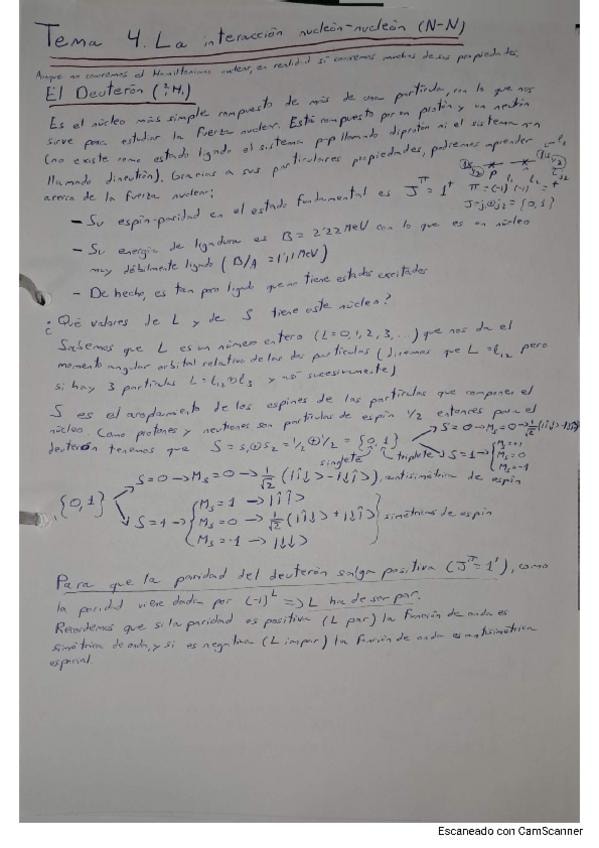 Tema 4. La interacción nucleón-nucleón (N-N)
Aunque no conocemos el Hamiltoniano nuclear, en realidad sí conocemos muchas de sus propiedades.
El Deuterón (²₁H₁)
Es el núcleo más simple compuesto de más de una partícula, con lo que nos
sirve para estudiar la fuerza nuclear. Está compuesto por un protón y un neutrón
(no existe como estado ligado el sistema p-p llamado diprotón ni el sistema n-n
llamado dineutrón). Gracias a sus particulares propiedades, podremos aprender
acerca de la fuerza nuclear:
π = (-1)^l₁ (-1)^l₂ = +
J = j₁⊗j₂ = {0,1}
- Su espín-paridad en el estado fundamental es J^π = 1⁺
- Su energía de ligadura es B = 2'22 MeV con lo que es un núcleo
muy débilmente ligado (B/A = 1'11 MeV)
- De hecho, es tan poco ligado que no tiene estados excitados
¿Qué valores de L y de S tiene este núcleo?
Sabemos que L es un número entero (L = 0, 1, 2, 3, ...) que nos da el
momento angular orbital relativo de las dos partículas (diremos que L = l₁₂ pero
si hay 3 partículas L = l₁₂⊗l₃ y así sucesivamente)
S es el acoplamiento de los espines de las partículas que componen el
núcleo. Como protones y neutrones son partículas de espín 1/2 entonces para el
deuterón tenemos que S = s₁⊗s₂ = 1/2 ⊗ 1/2 = {0,1}
singlete triplete
S=0 → Ms=0 → 1/√2 (|↑↓> - |↓↑>)
S=1 → { Ms=+1
Ms=0
Ms=-1
{0,1}
S=0 → Ms=0 → 1/√2 (|↑↓> - |↓↑>), antisimétrica de espín
S=1 → { Ms=1 → |↑↑>
Ms=0 → 1/√2 (|↑↓> + |↓↑>) } simétricas de espín
Ms=-1 → |↓↓>
Para que la paridad del deuterón salga positiva (J^π = 1⁺), como
la paridad viene dada por (-1)^L => L ha de ser par.
Recordemos que si la paridad es positiva (L par) la función de onda es
simétrica de onda, y si es negativa (L impar) la función de onda es antisimétrica
espacial.
Escaneado con CamScanner